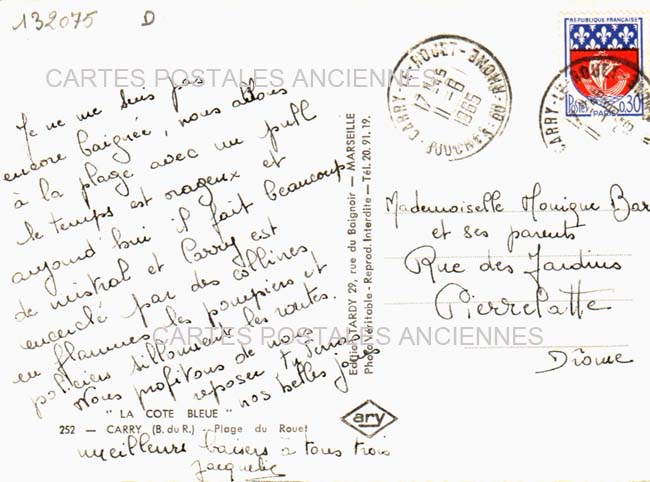 132075 D
CARTES POSTALES ANCIENNES
Je ne me suis pas
encore baignée, nous allons
à la plage avec un pull
le temps est orageux et
aujourd'hui il fait beaucoup
de mistral et Carry est
encerclé par des collines
en flammes les pompiers et
policiers sillonnent les routes.
Nous profitons de nous
reposer
nos belles joies
CARTES POSTALES ANCIENNES
" LA COTE BLEUE "
252 — CARRY (B. du R.) — Plage du Rouet
meilleurs baisers à tous trois
Jacqueline
ary
Editions TARDY 29, rue du Baignoir — MARSEILLE
Photo Véritable - Reprod. Interdite — Tél. 20.91.19.
CARRY-LE-ROUET - BOUCHES-DU-RHONE
17 H 45
11 -6
1965
REPUBLIQUE FRANÇAISE
Postes 0,30
PARIS
CARRY-LE-ROUET
Mademoiselle Monique Bar
et ses parents
Rue des Jardins
Pierrelatte
Drôme